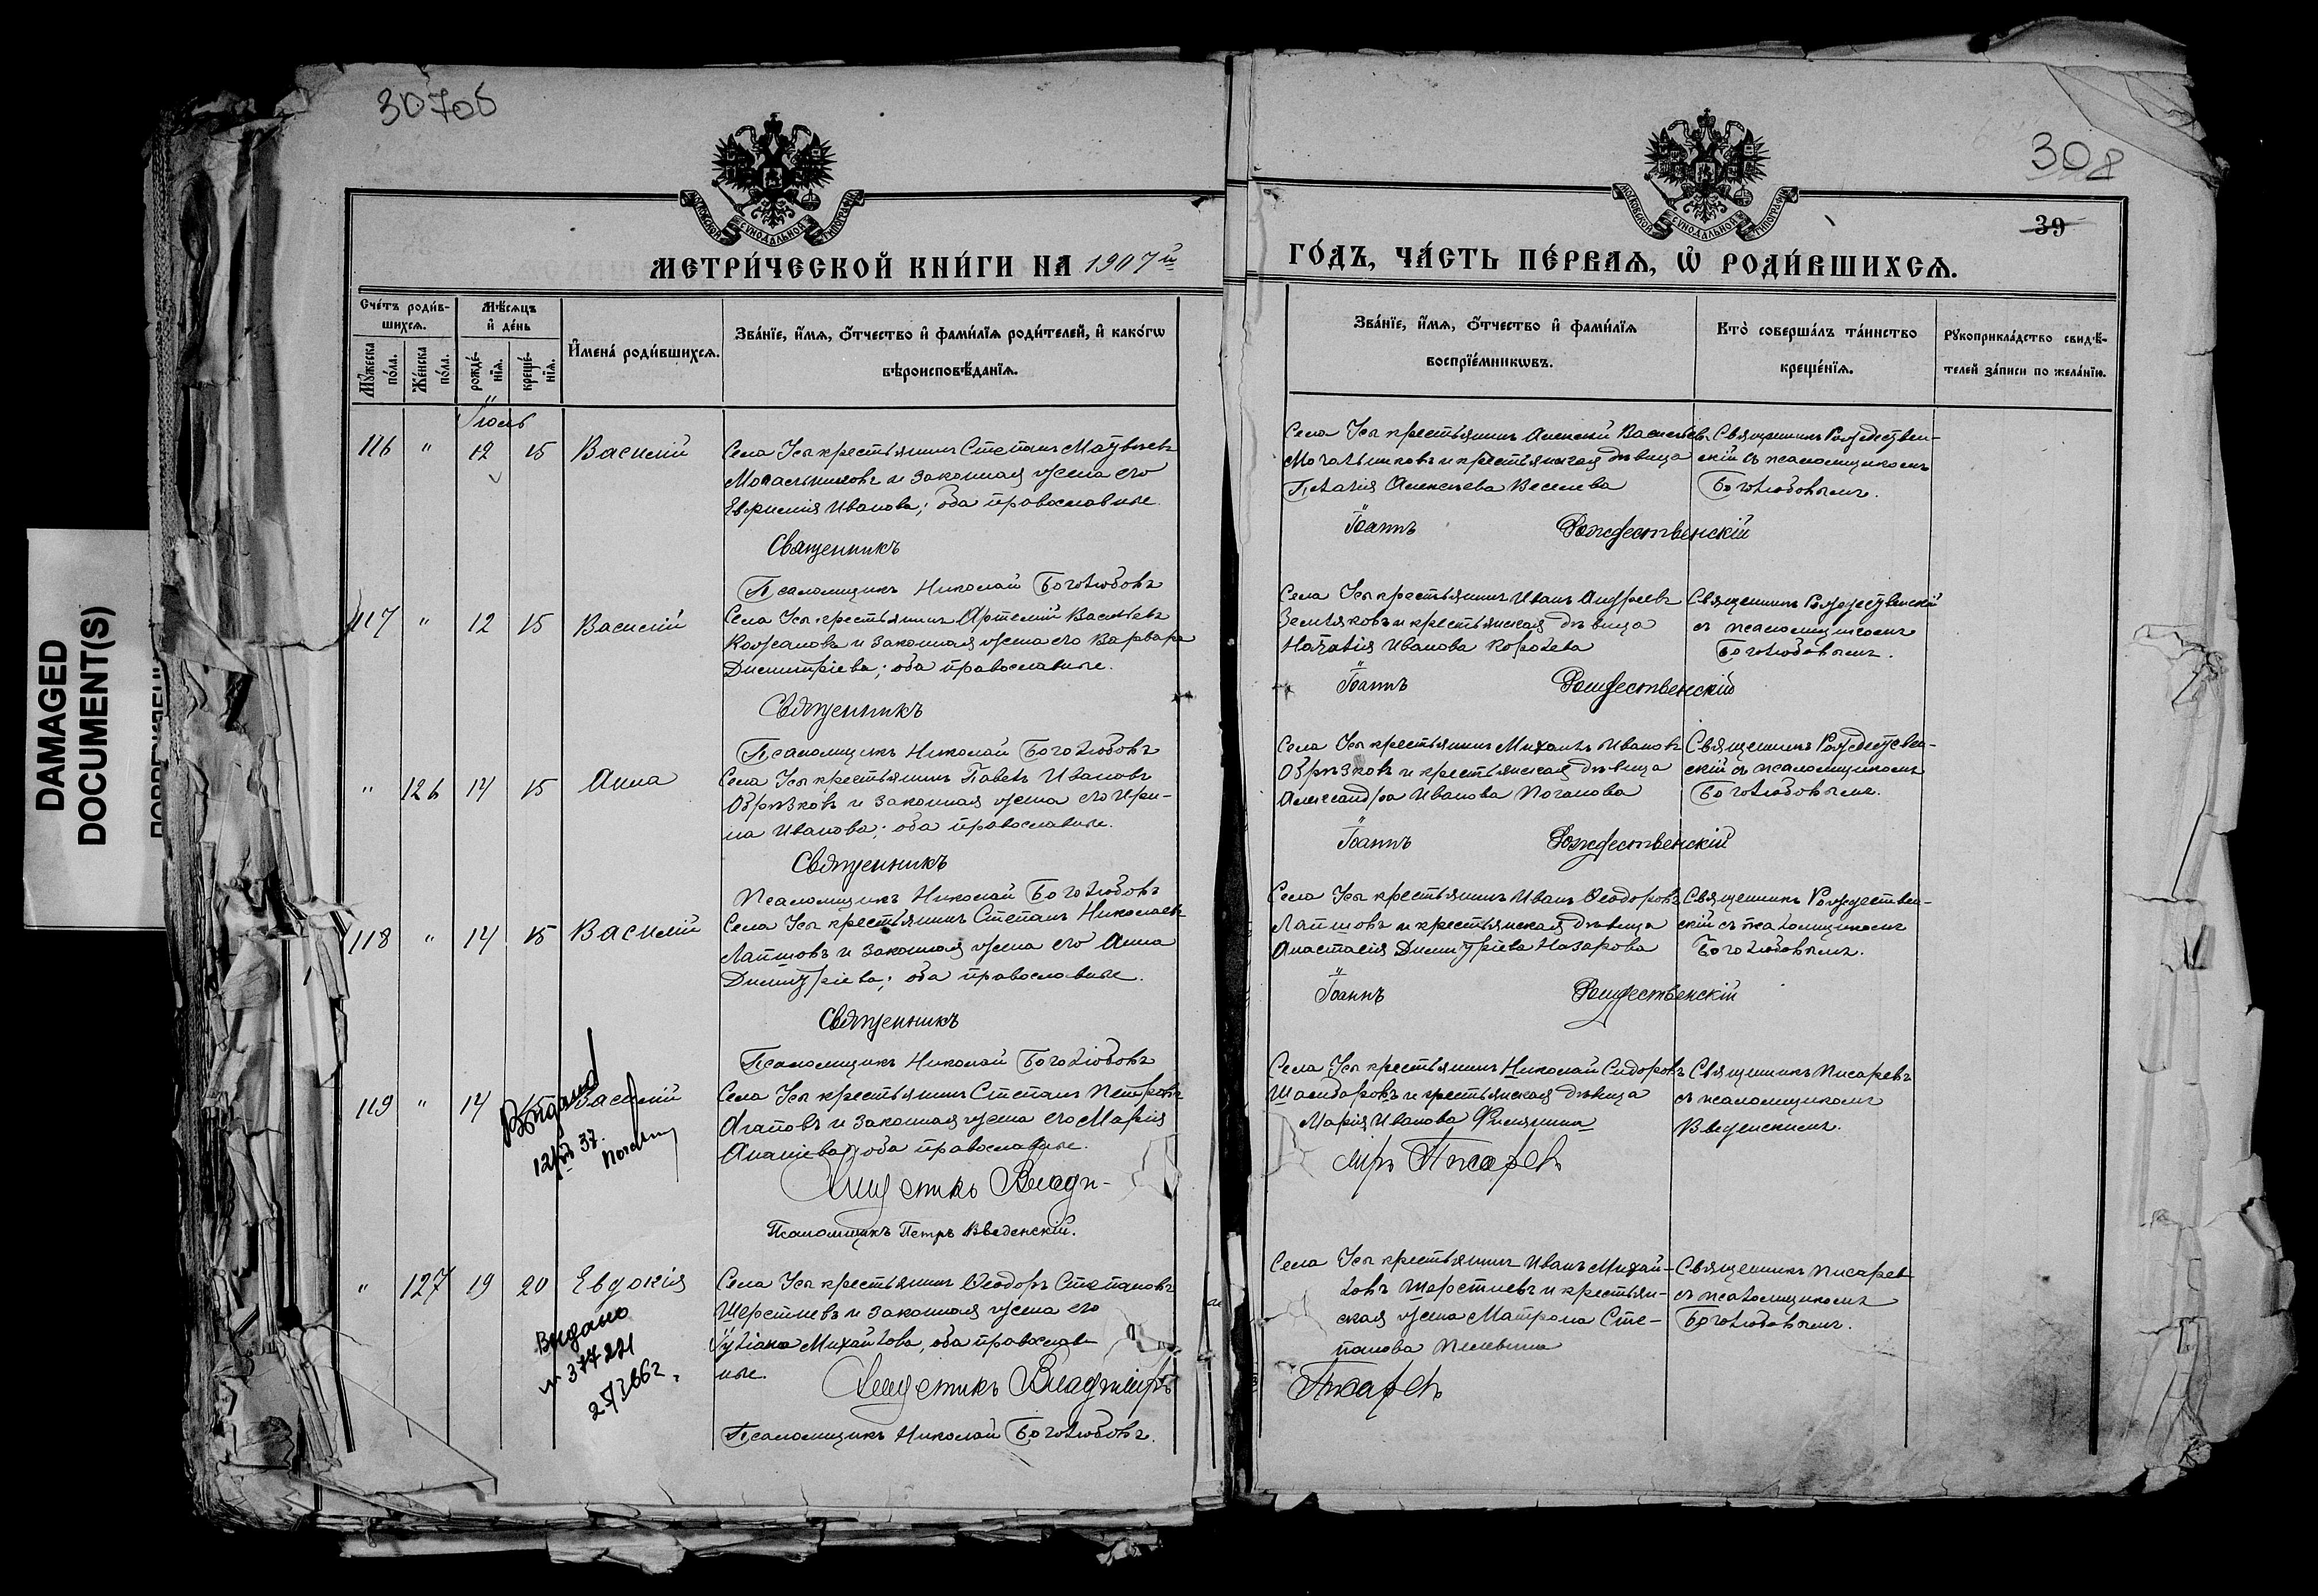 307об
308
39
МОСКОВСКОЙ СѴНОДАЛЬНОЙ ТИПОГРАФІИ
МОСКОВСКОЙ СѴНОДАЛЬНОЙ ТИПОГРАФІИ
МЕТРИ́ЧЕСКОЙ КНИ́ГИ НА 1907й
ГО́ДЪ, ЧА́СТЬ ПЕ́РВАѦ, Ѽ РОДИ́ВШИХСѦ.
Сче́тъ роди́в-
шихсѧ.
Мꙋжеска по́ла.
Же́нска по́ла.
Мѣ́сѧцъ
и҆ де́нь
рожде́-
нїѧ.
креще́-
нїѧ.
И҆мена̀ роди́вшихсѧ.
Зва́нїе, и҆́мѧ, ѻ҆́тчество и҆ фами́лїѧ роди́телей, и҆ како́гѡ
вѣроисповѣ́данїѧ.
Зва́нїе, и҆́мѧ, ѻ҆́тчество и҆ фами́лїѧ
воспрїе́мникѡвъ.
Кто̀ соверша́лъ та́инство
креще́нїѧ.
Рꙋкоприкла́дство свидѣ́-
телей за́писи по жела́нїю.
Іюль
116 " 12 15 Василій
Села Усы крестьянинъ Степанъ Матвѣевъ
Могальниковъ и законная жена его
Евфимія Иванова; оба православные.
Священникъ
Псаломщикъ Николай Боголюбовъ
Села Усы крестьянинъ Алексѣй Васильевъ
Могальниковъ и крестьянская дѣвица
Пелагія Алексѣева Веселева
Священникъ Рождествен-
скій съ псаломщикомъ
Боголюбовымъ.
Іоаннъ Рождественскій
117 " 12 15 Василій
Села Усы крестьянинъ Артемій Васильевъ
Кожановъ и законная жена его Варвара
Димитріева; оба православные.
Священникъ
Псаломщикъ Николай Боголюбовъ
Села Усы крестьянинъ Иванъ Андреевъ
Земляковъ и крестьянская дѣвица
Наталія Иванова Королева
Священникъ Рождественскій
съ псаломщикомъ
Боголюбовымъ.
Іоаннъ Рождественскій
" 126 14 15 Анна
Села Усы крестьянинъ Павелъ Ивановъ
Обрѣзковъ и законная жена его Ири-
на Иванова; оба православные.
Священникъ
Псаломщикъ Николай Боголюбовъ
Села Усы крестьянинъ Михаилъ Ивановъ
Обрѣзковъ и крестьянская дѣвица
Александра Иванова Поганова
Священникъ Рождествен-
скій съ псаломщикомъ
Боголюбовымъ.
Іоаннъ Рождественскій
118 " 14 15 Василій
Села Усы крестьянинъ Степанъ Николаевъ
Лапшовъ и законная жена его Анна
Димитріева; оба православные.
Священникъ
Псаломщикъ Николай Боголюбовъ
Села Усы крестьянинъ Иванъ Ѳеодоровъ
Лапшовъ и крестьянская дѣвица
Анастасія Димитріева Назарова
Священникъ Рождествен-
скій съ псаломщикомъ
Боголюбовымъ.
Іоаннъ Рождественскій
119 " 14 15 Василій
Выдано
Села Усы крестьянинъ Степанъ Петровъ
Агаповъ и законная жена его Марія
Ананіева; оба православные.
Священникъ Влади-
Псаломщикъ Петръ Введенскій.
Села Усы крестьянинъ Николай Сидоровъ
Шандаровъ и крестьянская дѣвица
Марія Иванова
Священникъ Писаревъ
съ псаломщикомъ
Введенскимъ.
міръ Писаревъ
" 127 19 20 Евдокія
Выдано
№ 37721
Села Усы крестьянинъ Ѳеодоръ Степановъ
Шерстневъ и законная жена его
Іуліана Михайлова, оба православ-
ные.
Священникъ Владиміръ
Псаломщикъ Николай Боголюбовъ.
Села Усы крестьянинъ Иванъ Михай-
ловъ Шерстневъ и крестьян-
ская жена Матрона Сте-
панова Пелевина
Священникъ Писаревъ
съ псаломщикомъ
Боголюбовымъ.
Писаревъ
DAMAGED
DOCUMENT(S)